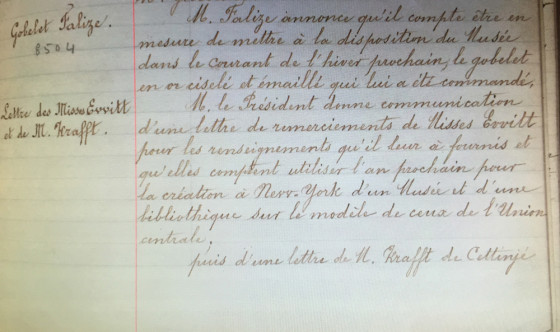 Gobelet Falize.
8504
M. Falize annonce qu'il compte être en
mesure de mettre à la disposition du Musée
dans le courant de l'hiver prochain, le gobelet
en or ciselé et émaillé qui lui a été commandé.
Lettre des Misses Evvitt
et de M. Krafft.
M. le Président donne communication
d'une lettre de remerciements de Misses Evvitt
pour les renseignements qu'il leur à fournis et
qu'elles comptent utiliser l'an prochain pour
la création à New-York d'un Musée et d'une
bibliothèque sur le modèle de ceux de l'Union
centrale.
puis d'une lettre de M. Krafft de Cettinjé